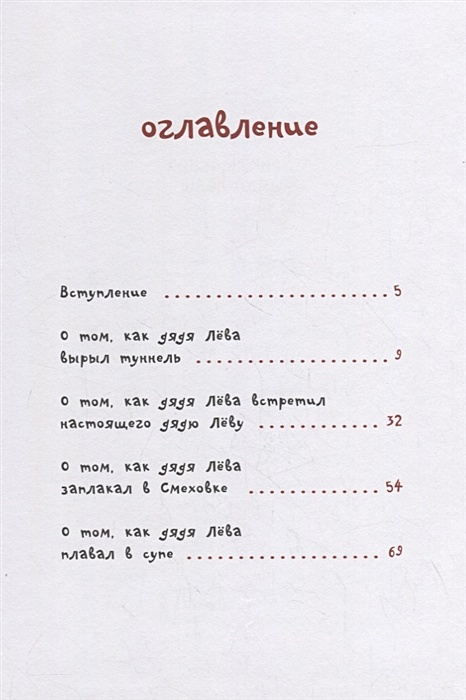 оглавление
Вступление ........................ 5
О том, как дядя Лёва
вырыл туннель ..................... 9
О том, как дядя Лёва встретил
настоящего дядю Лёву .............. 32
О том, как дядя Лёва
заплакал в Смеховке ............... 54
О том, как дядя Лёва
плавал в супе ..................... 69